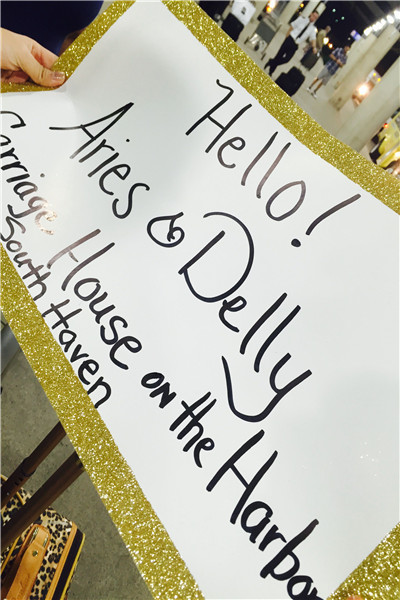 Hello!
Aries & Delly
Carriage House on the Harbor
South Haven